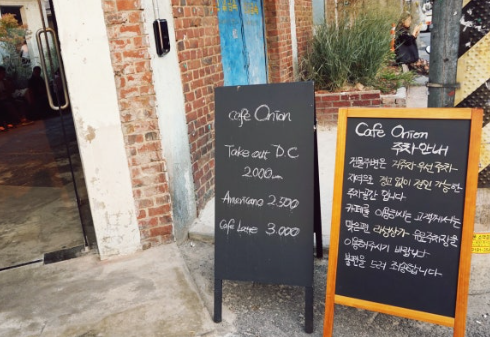 cafe Onion
Take out D.C
2.000
Americano 2.500
Cafe Latte 3.000
Cafe Onion
주차안내
건물주변은 거주자 우선 주차
지역으로 경고 없이 견인 가능한
주차공간 입니다.
카페를 이용하시는 고객께서는
맞은편 유료주차장을
이용해주시기 바랍니다
불편을 드려 죄송합니다